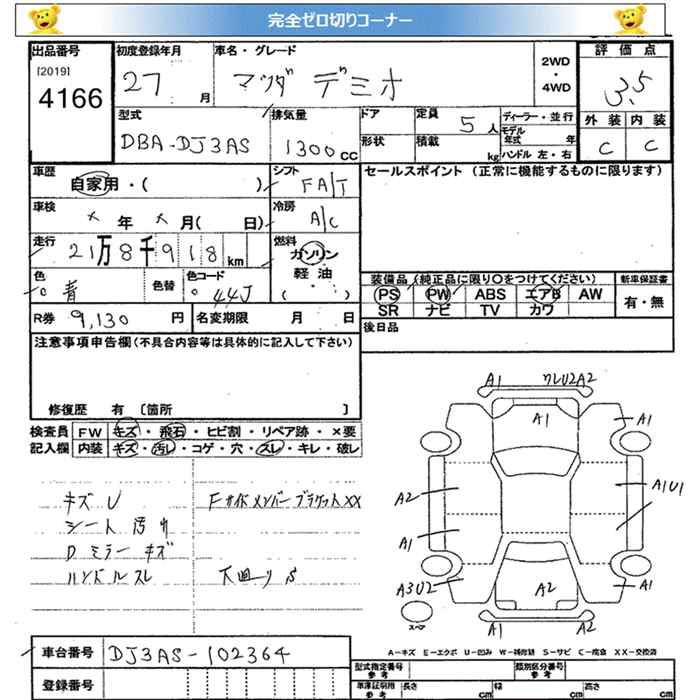 完全ゼロ切りコーナー
出品番号 初度登録年月 車名・グレード 2WD・4WD 評価点
[2019] 4166 27 月 マツダ デミオ 3.5
型式 排気量 ドア 定員 5人 ディーラー・並行 外装 内装
DBA-DJ3AS 1300cc 形状 積載 kg モデル年式 年 C C
ハンドル 左・右
車歴 自家用・( ) シフト FA/T セールスポイント (正常に機能するものに限ります)
車検 ×年×月( 日) 冷房 A/C
走行 21万8千918km 燃料 ガソリン 軽油 ( ・ )
色 青 色替 色コード 44J 装備品(純正品に限り○をつけてください) 新車保証書
PS PW ABS エアB AW 有・無
R券 9,130円 名変期限 月 日 SR ナビ TV カワ
後日品
注意事項申告欄(不具合内容等は具体的に記入して下さい)
修復歴 有 〔箇所 〕
検査員 FW キズ・飛石・ヒビ割・リペア跡・×要
記入欄 内装 キズ・汚レ・コゲ・穴・スレ・キレ・破レ
キズU Fサイドメンバーブラケット××
シート汚れ
Dミラーキズ
ハンドルスレ 下回りS
A1 ワレU2A2
A1 A1
A2 A1U1
A1
A3U2 A2 A1
スペア A1 A2
A-キズ E-エクボ U-凹み W-補修跡 S-サビ C-腐食 XX-交換済
車台番号 DJ3AS-102364
型式指定番号 参考 類別区分番号 参考
登録番号 車庫証明用 参考 長さ cm 幅 cm 高さ cm